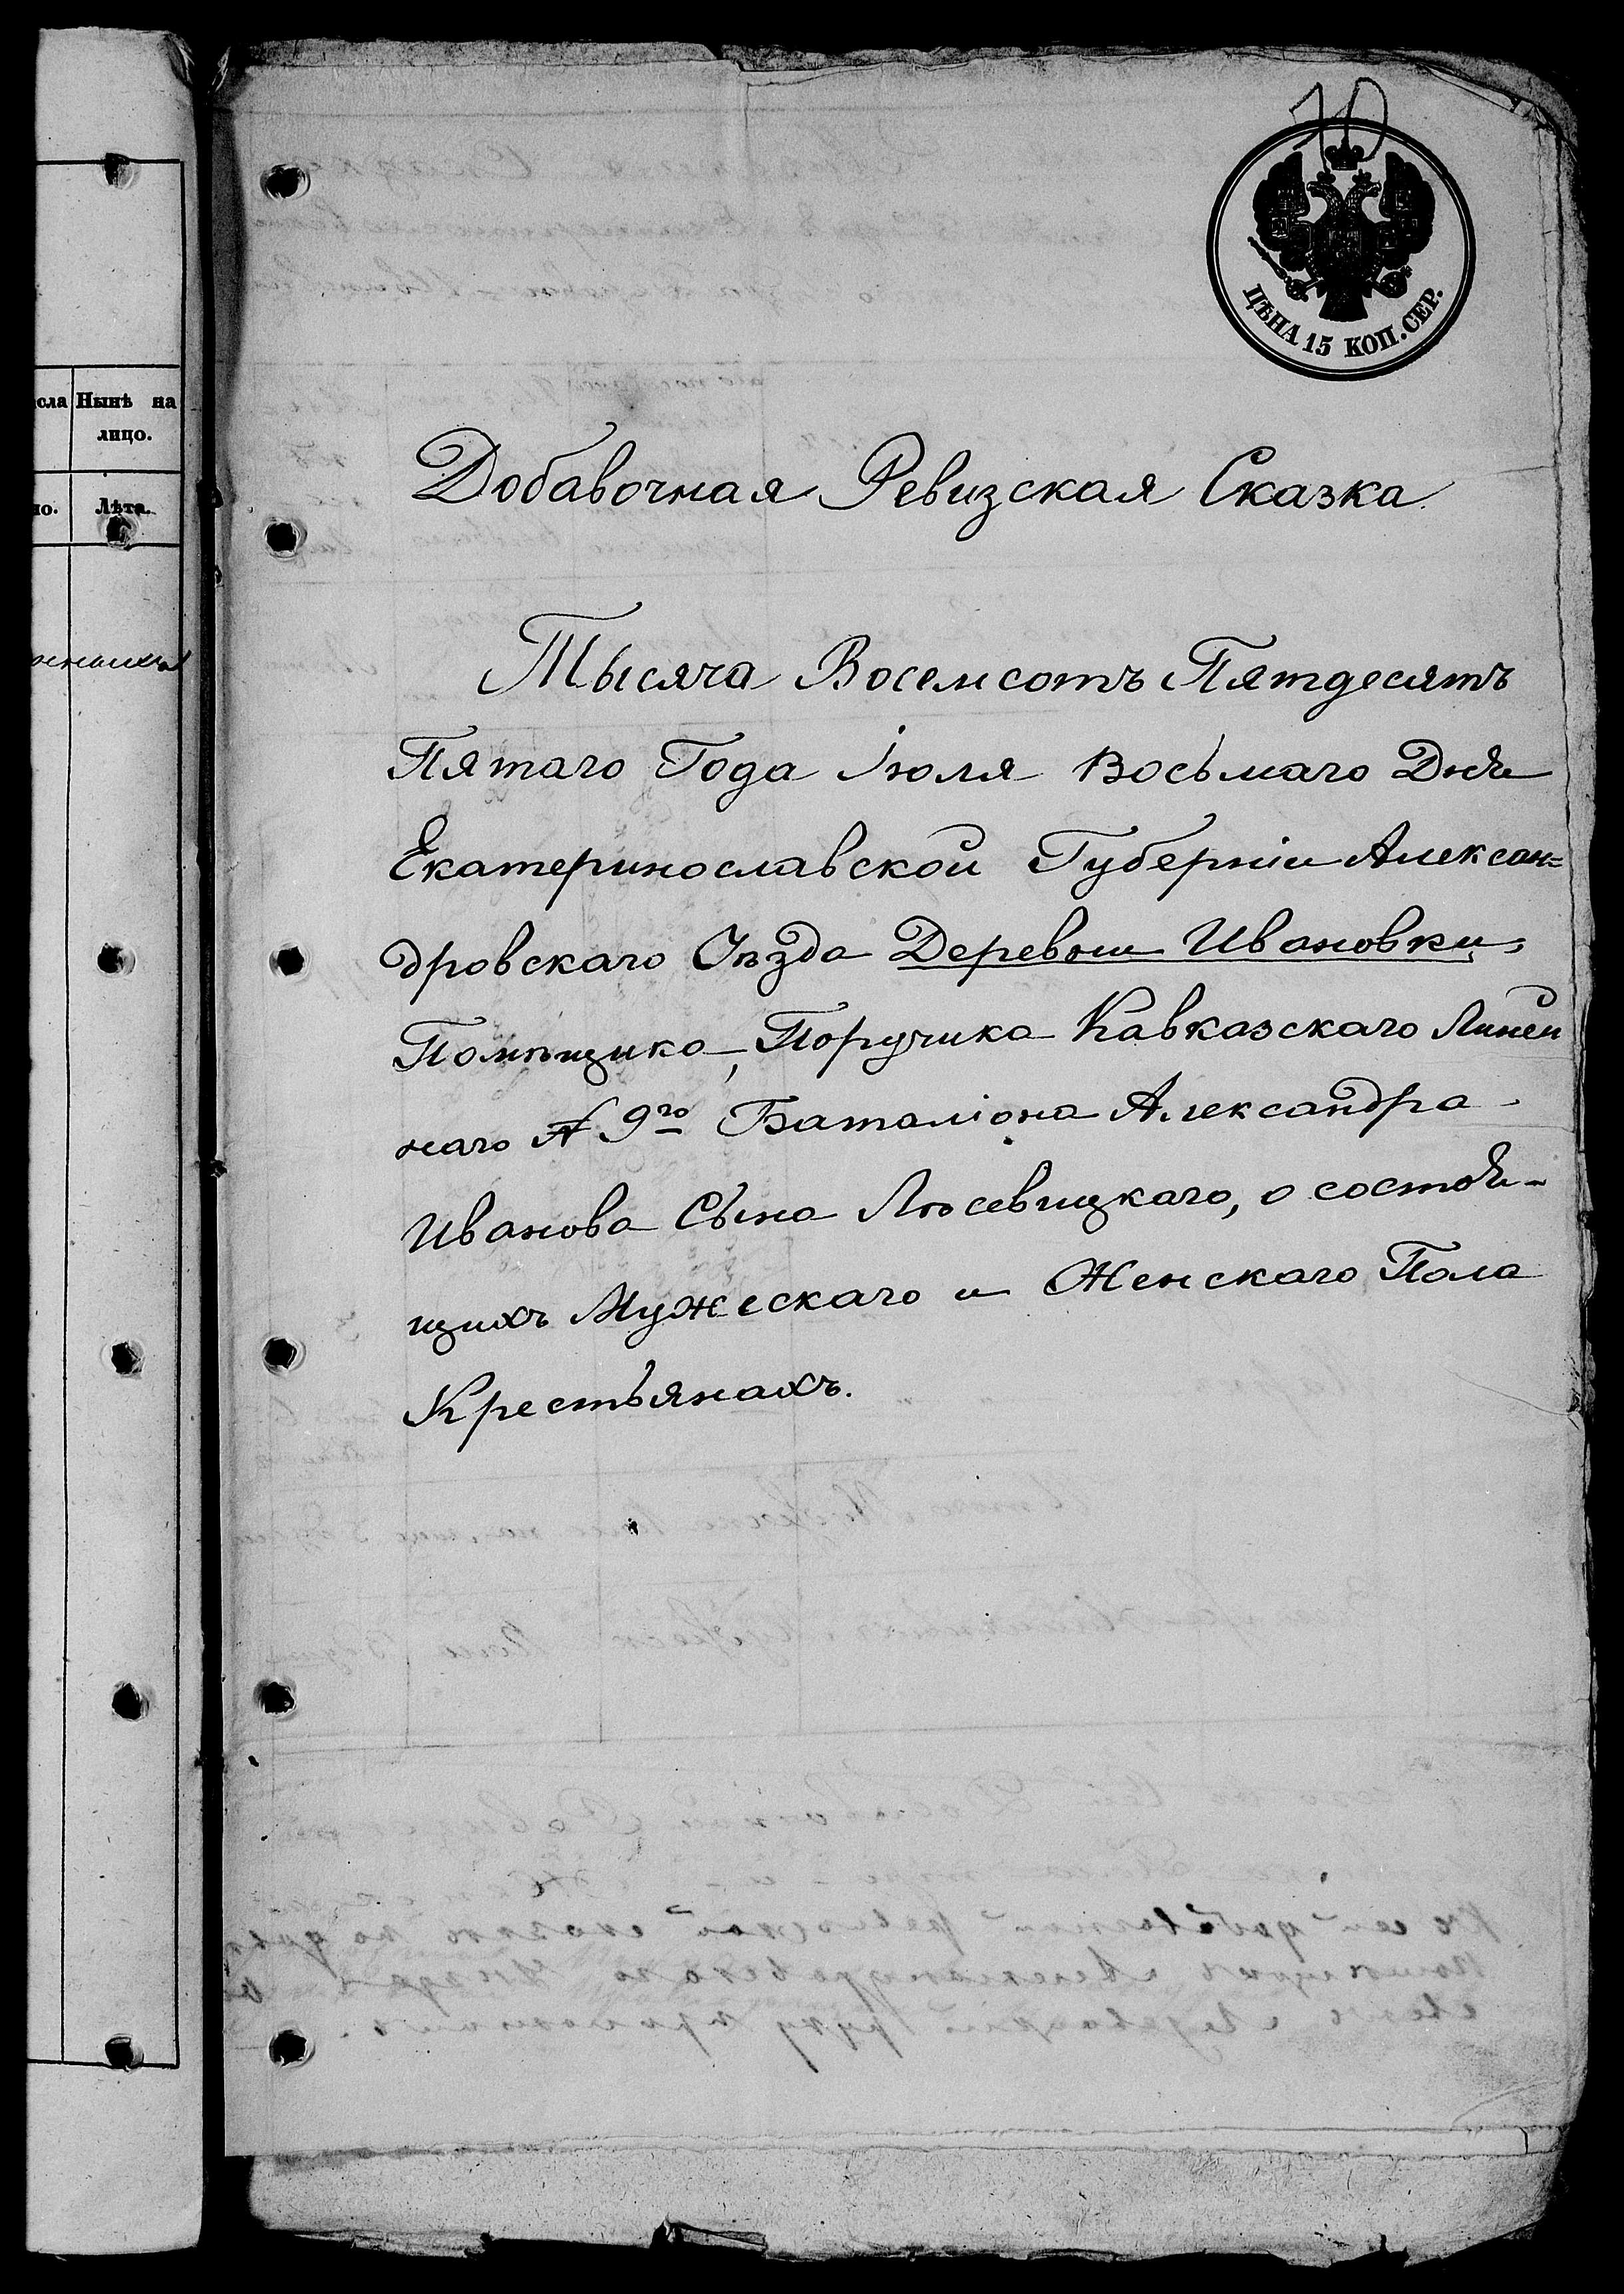 сла Нынѣ на
лицо.
но. Лѣта.
10
ЦѢНА 15 КОП. СЕР.
Добавочная Ревизская Сказка.
Тысяча Восемсотъ Пятдесятъ
Пятаго Года Іюля Восьмаго Дня
Екатеринославской Губерніи Алексан=
дровскаго Уѣзда Деревни Ивановки,
Помѣщика, Поручика Кавказскаго Линей
наго № 9го Баталіона Александра
Иванова Сына Лисевицкаго, о состоя-
щихъ Мужескаго и Женскаго Пола
Крестьянахъ.